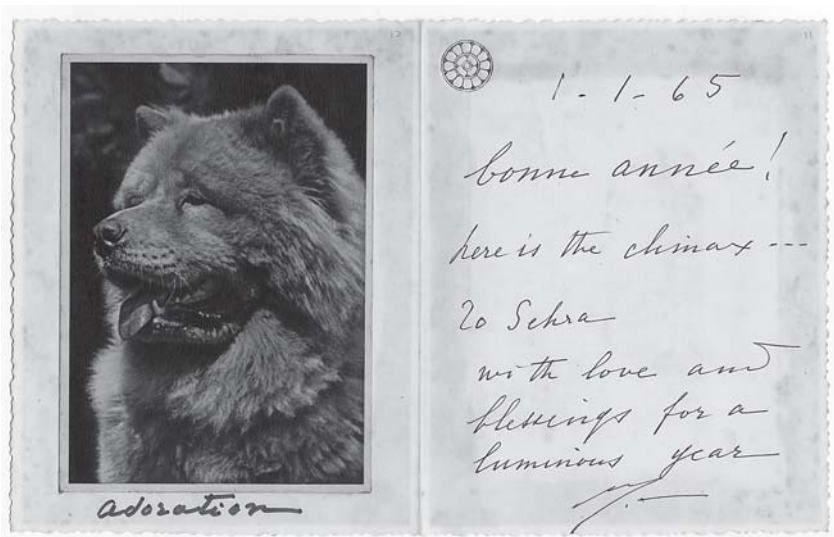 12
adoration
11
1-1-65
bonne année!
here is the climax ---
To Sehra
with love and
blessings for a
luminous year